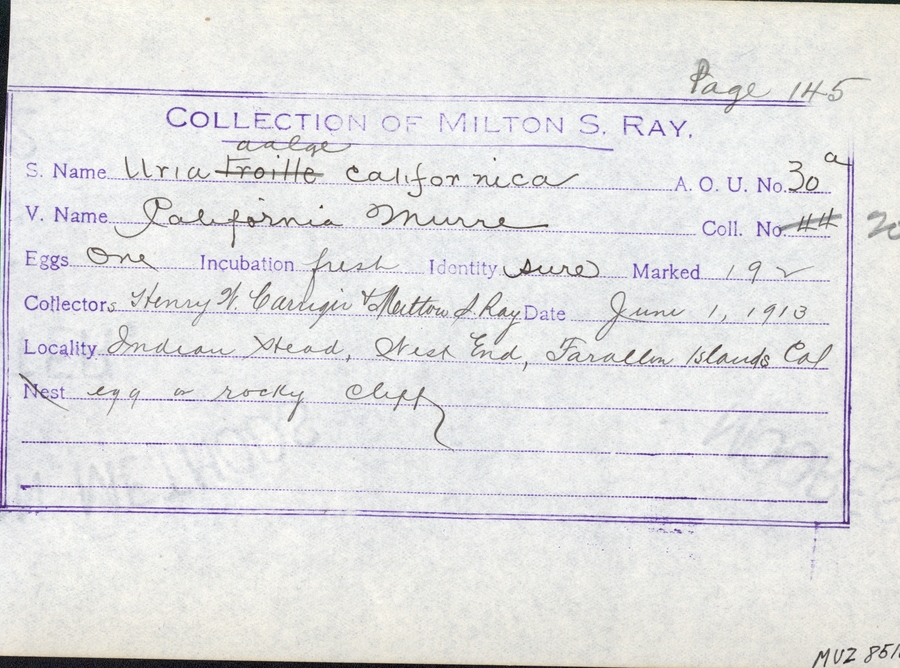 Page 145
COLLECTION OF MILTON S. RAY.
aalge
S. Name Uria Troille californica A. O. U. No. 30a
V. Name California Murre Coll. No. 44
Eggs One Incubation fresh Identity sure Marked 192
Collectors Henry W. Carriger & Milton S. Ray Date June 1, 1913
Locality Indian Head, West End, Farallon Islands Cal
Nest egg on rocky cliff
MUZ 851